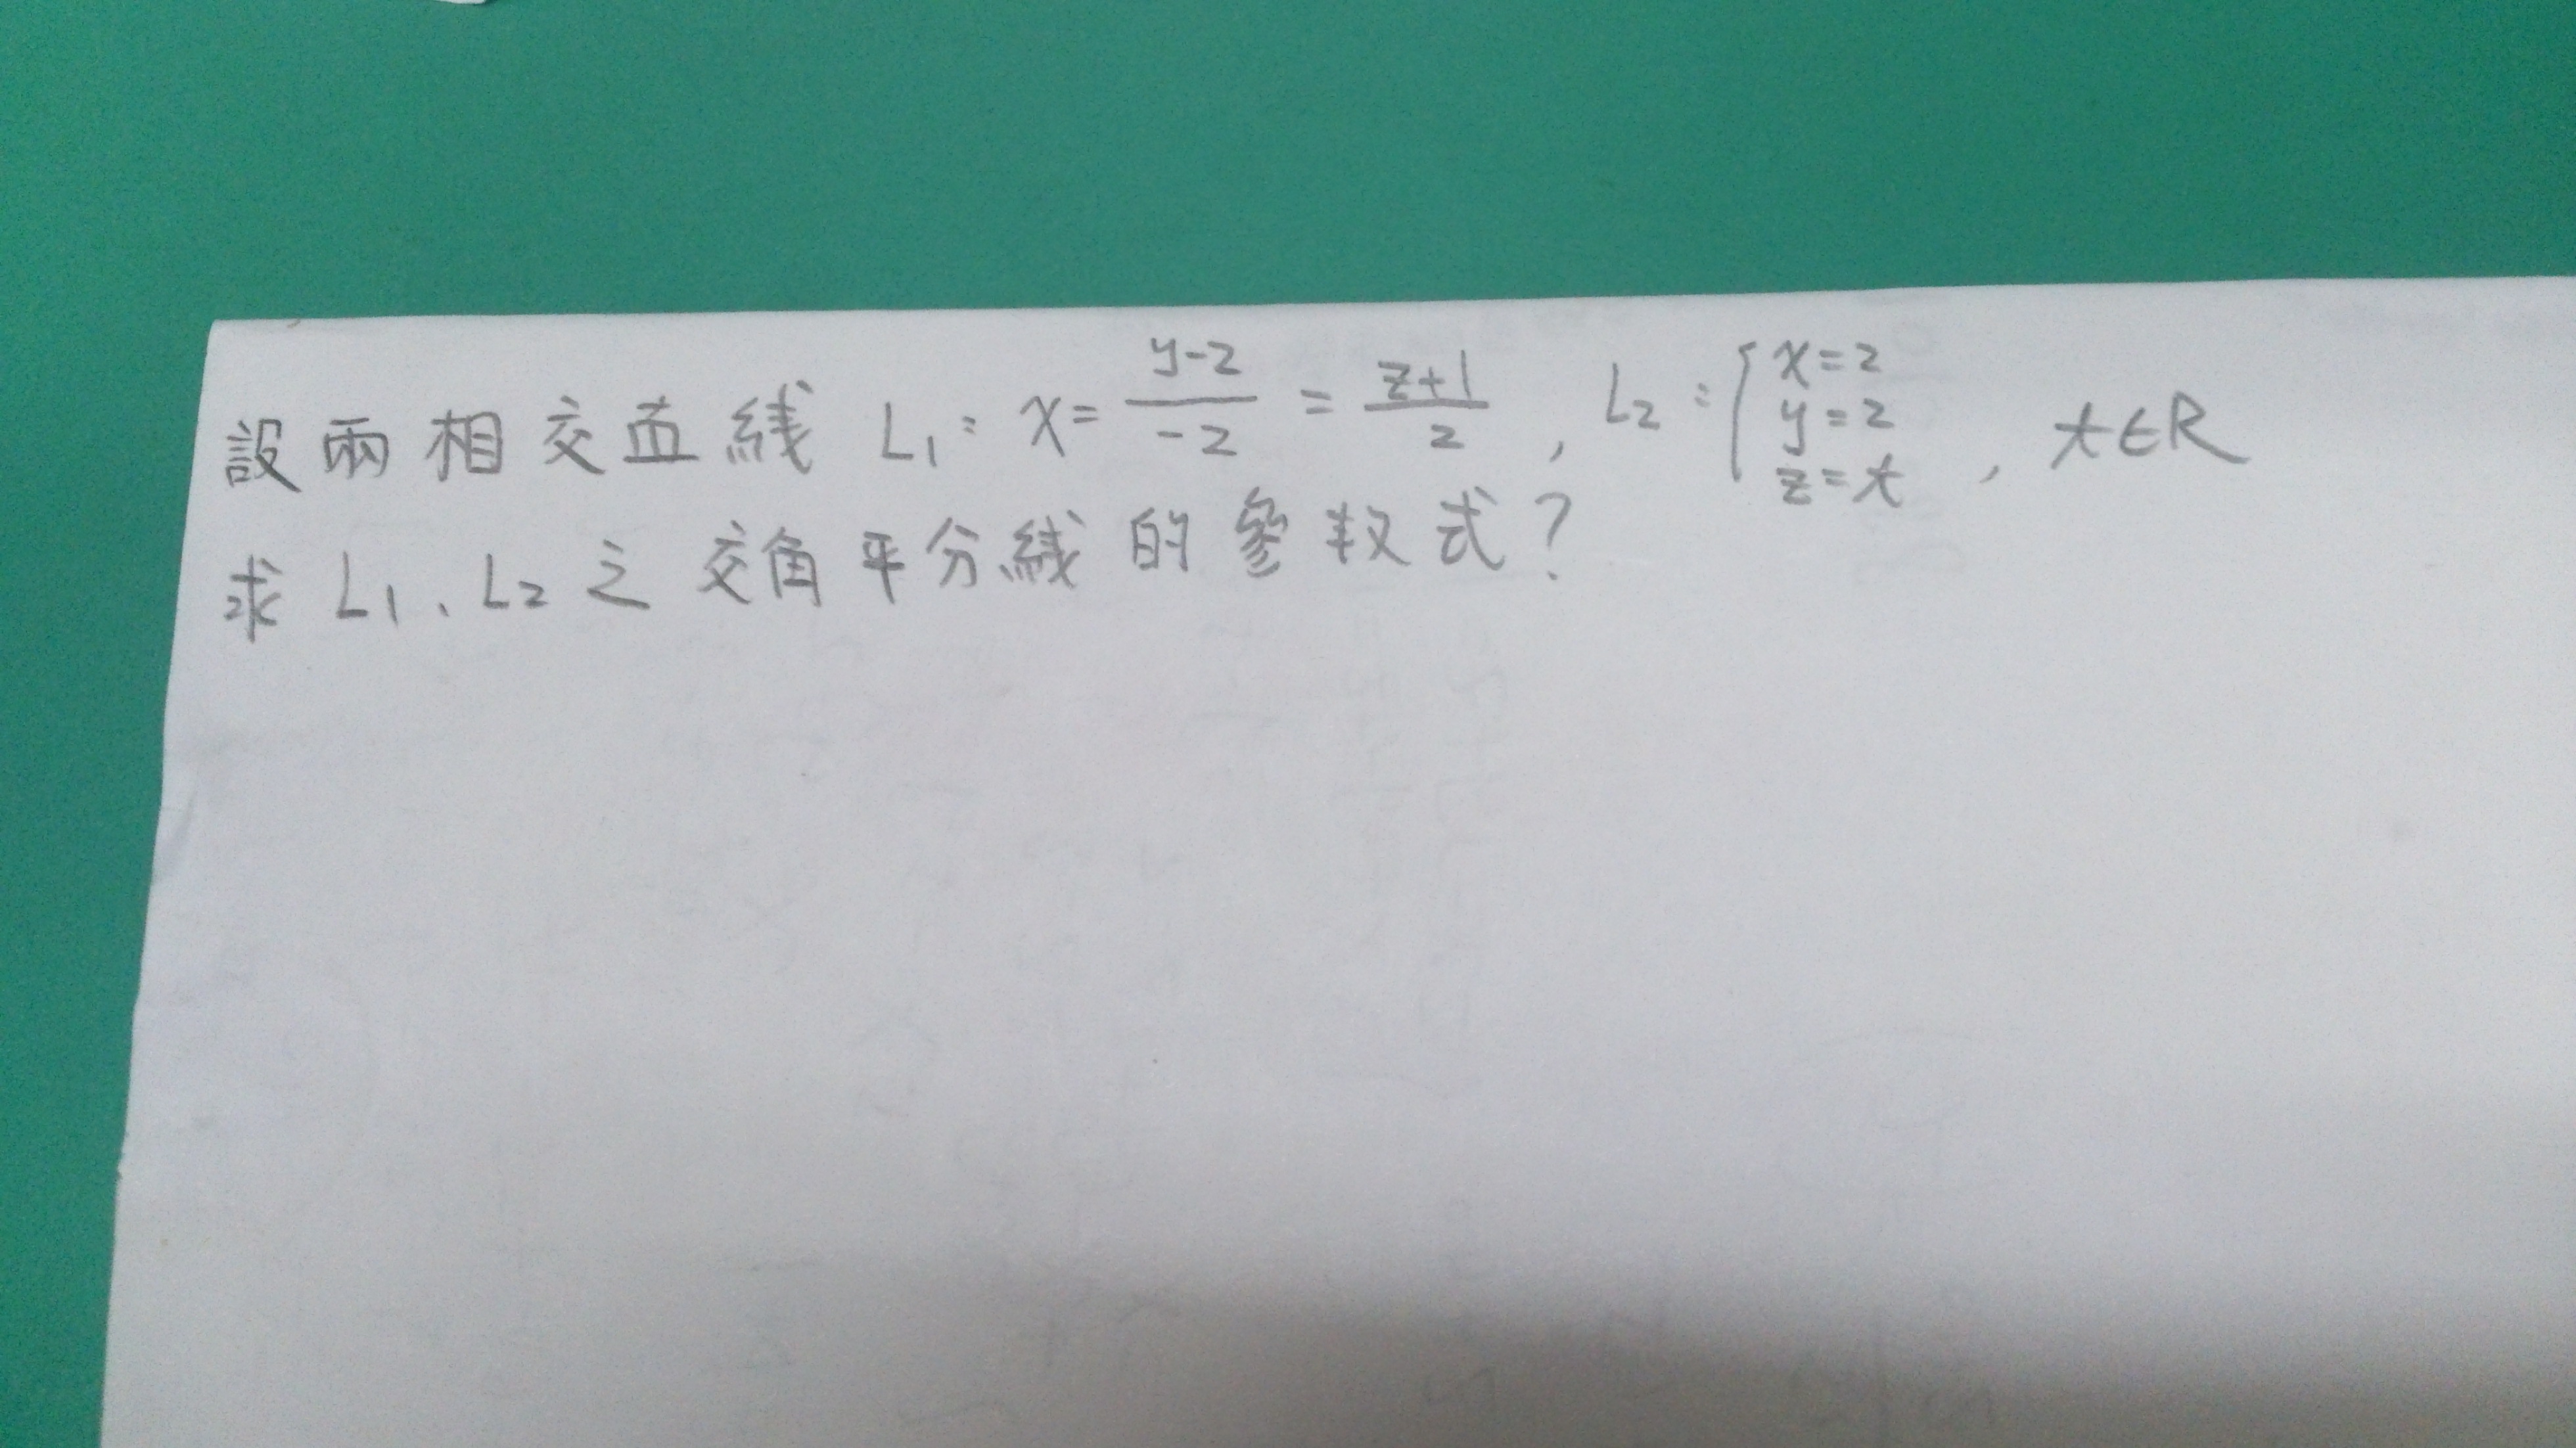 設兩相交直線 L₁: x = (y-2)/(-2) = (z+1)/2 , L₂: { x=2 y=2 z=t , t∈R
求 L₁、L₂ 之交角平分線的參数式?